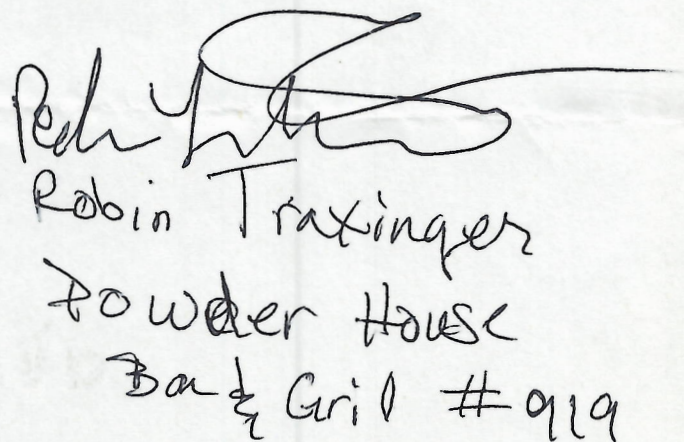 Robin Traxinger
Powder House
Bar & Gril #919